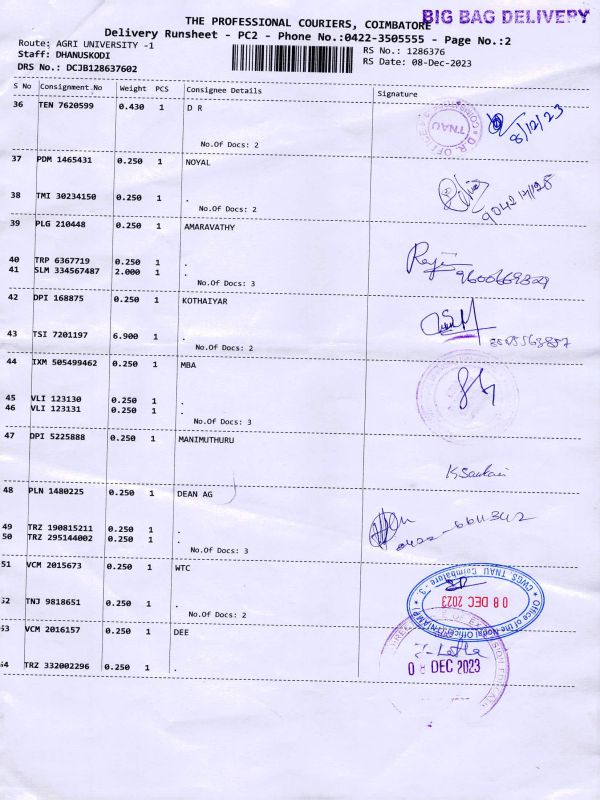 THE PROFESSIONAL COURIERS, COIMBATORE
BIG BAG DELIVERY
Delivery Runsheet - PC2 - Phone No.:0422-3505555 - Page No.:2
Route: AGRI UNIVERSITY -1
RS No.: 1286376
Staff: DHANUSKODI
RS Date: 08-Dec-2023
DRS No.: DCJB128637602
S No Consignment.No Weight PCS Consignee Details Signature
36 TEN 7620599 0.430 1 D R
TNAU
8/12/23
No.Of Docs: 2
37 PDM 1465431 0.250 1 NOYAL
38 TMI 30234150 0.250 1 .
No.Of Docs: 2
39 PLG 210448 0.250 1 AMARAVATHY
40 TRP 6367719 0.250 1 .
41 SLM 334567487 2.000 1 .
No.Of Docs: 3
42 DPI 168875 0.250 1 KOTHAIYAR
43 TSI 7201197 6.900 1 .
No.Of Docs: 2
44 IXM 505499462 0.250 1 MBA
45 VLI 123130 0.250 1 .
46 VLI 123131 0.250 1 .
No.Of Docs: 3
47 DPI 5225888 0.250 1 MANIMUTHURU
48 PLN 1480225 0.250 1 DEAN AG
0422-6611342
49 TRZ 190815211 0.250 1 .
50 TRZ 295144002 0.250 1 .
No.Of Docs: 3
51 VCM 2015673 0.250 1 WTC
CWGS, TNAU, Coimbatore - 3.
08 DEC 2023
Office of the Nodal Officer
52 TNJ 9818651 0.250 1 .
No.Of Docs: 2
53 VCM 2016157 0.250 1 DEE
08 DEC 2023
54 TRZ 332002296 0.250 1 .